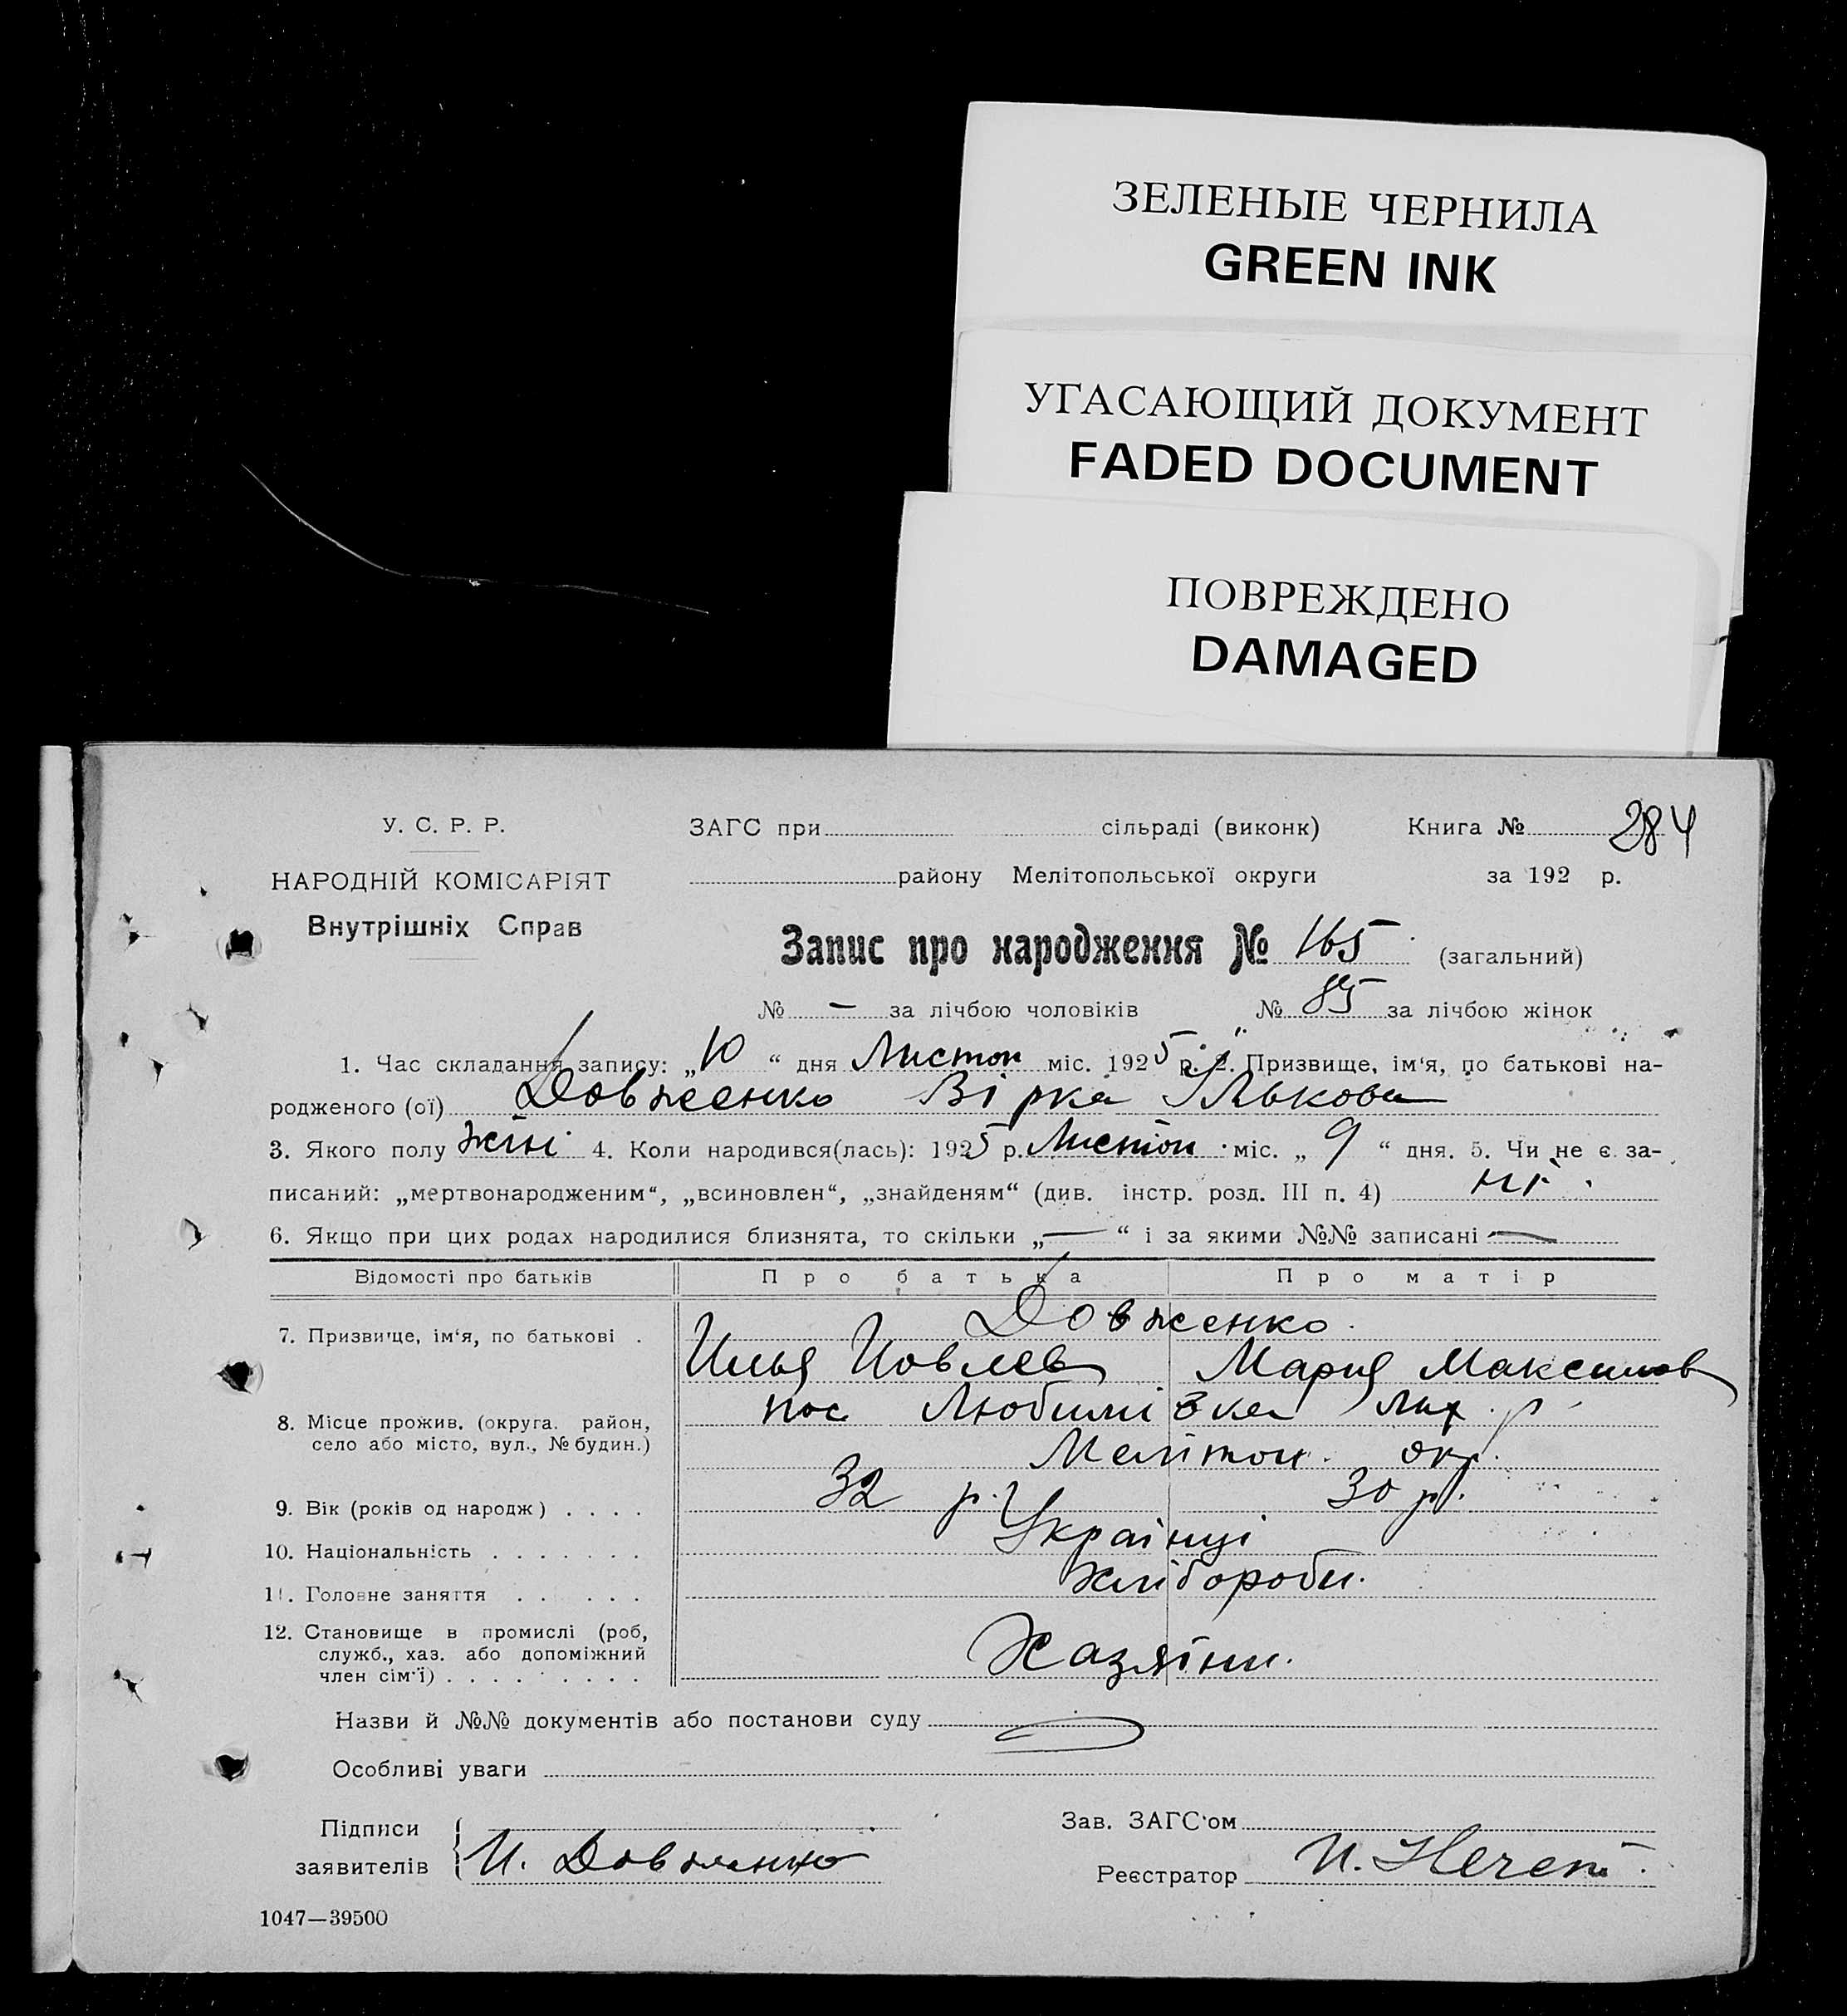 ЗЕЛЕНЫЕ ЧЕРНИЛА
GREEN INK
УГАСАЮЩИЙ ДОКУМЕНТ
FADED DOCUMENT
ПОВРЕЖДЕНО
DAMAGED
У. С. Р. Р. ЗАГС при сільраді (виконк) Книга № 284
НАРОДНІЙ КОМІСАРІЯТ району Мелітопольської округи за 192 р.
Внутрішніх Справ
Запис про народження № 165 (загальний)
№ — за лічбою чоловіків № 85 за лічбою жінок
1. Час складання запису: „10“ дня Листоп міс. 1925 р. 2. Призвище, ім‘я, по батькові на-
родженого (ої) Довженко Вірка Ількова
3. Якого полу жін. 4. Коли народився(лась): 1925 р. Листоп міс. „9“ дня. 5. Чи не є за-
писаний: „мертвонародженим“, „всиновлен“, „знайденям“ (див. інстр. розд. III п. 4) ні.
6. Якщо при цих родах народилися близнята, то скільки „—“ і за якими №№ записані —
Відомості про батьків Про батька Про матір
Довженко.
7. Призвище, ім‘я, по батькові .
Илья Иовлев Мария Максимов
8. Місце прожив. (округа. район, пос Любимівка р
село або місто, вул., № будин.) Меліtоп. окр.
9. Вік (років од народж) . . . . 32 р. 30 р.
10. Національність . . . . . . . Українці
11. Головне заняття . . . . . Хлібороби.
12. Становище в промислі (роб,
служб., хаз. або допоміжний Хазяїни.
член сім‘ї) . . . . . . . .
Назви й №№ документів або постанови суду
Особливі уваги
Підписи Зав. ЗАГС‘ом
заявителів И. Довженко
Реєстратор И.
1047—39500